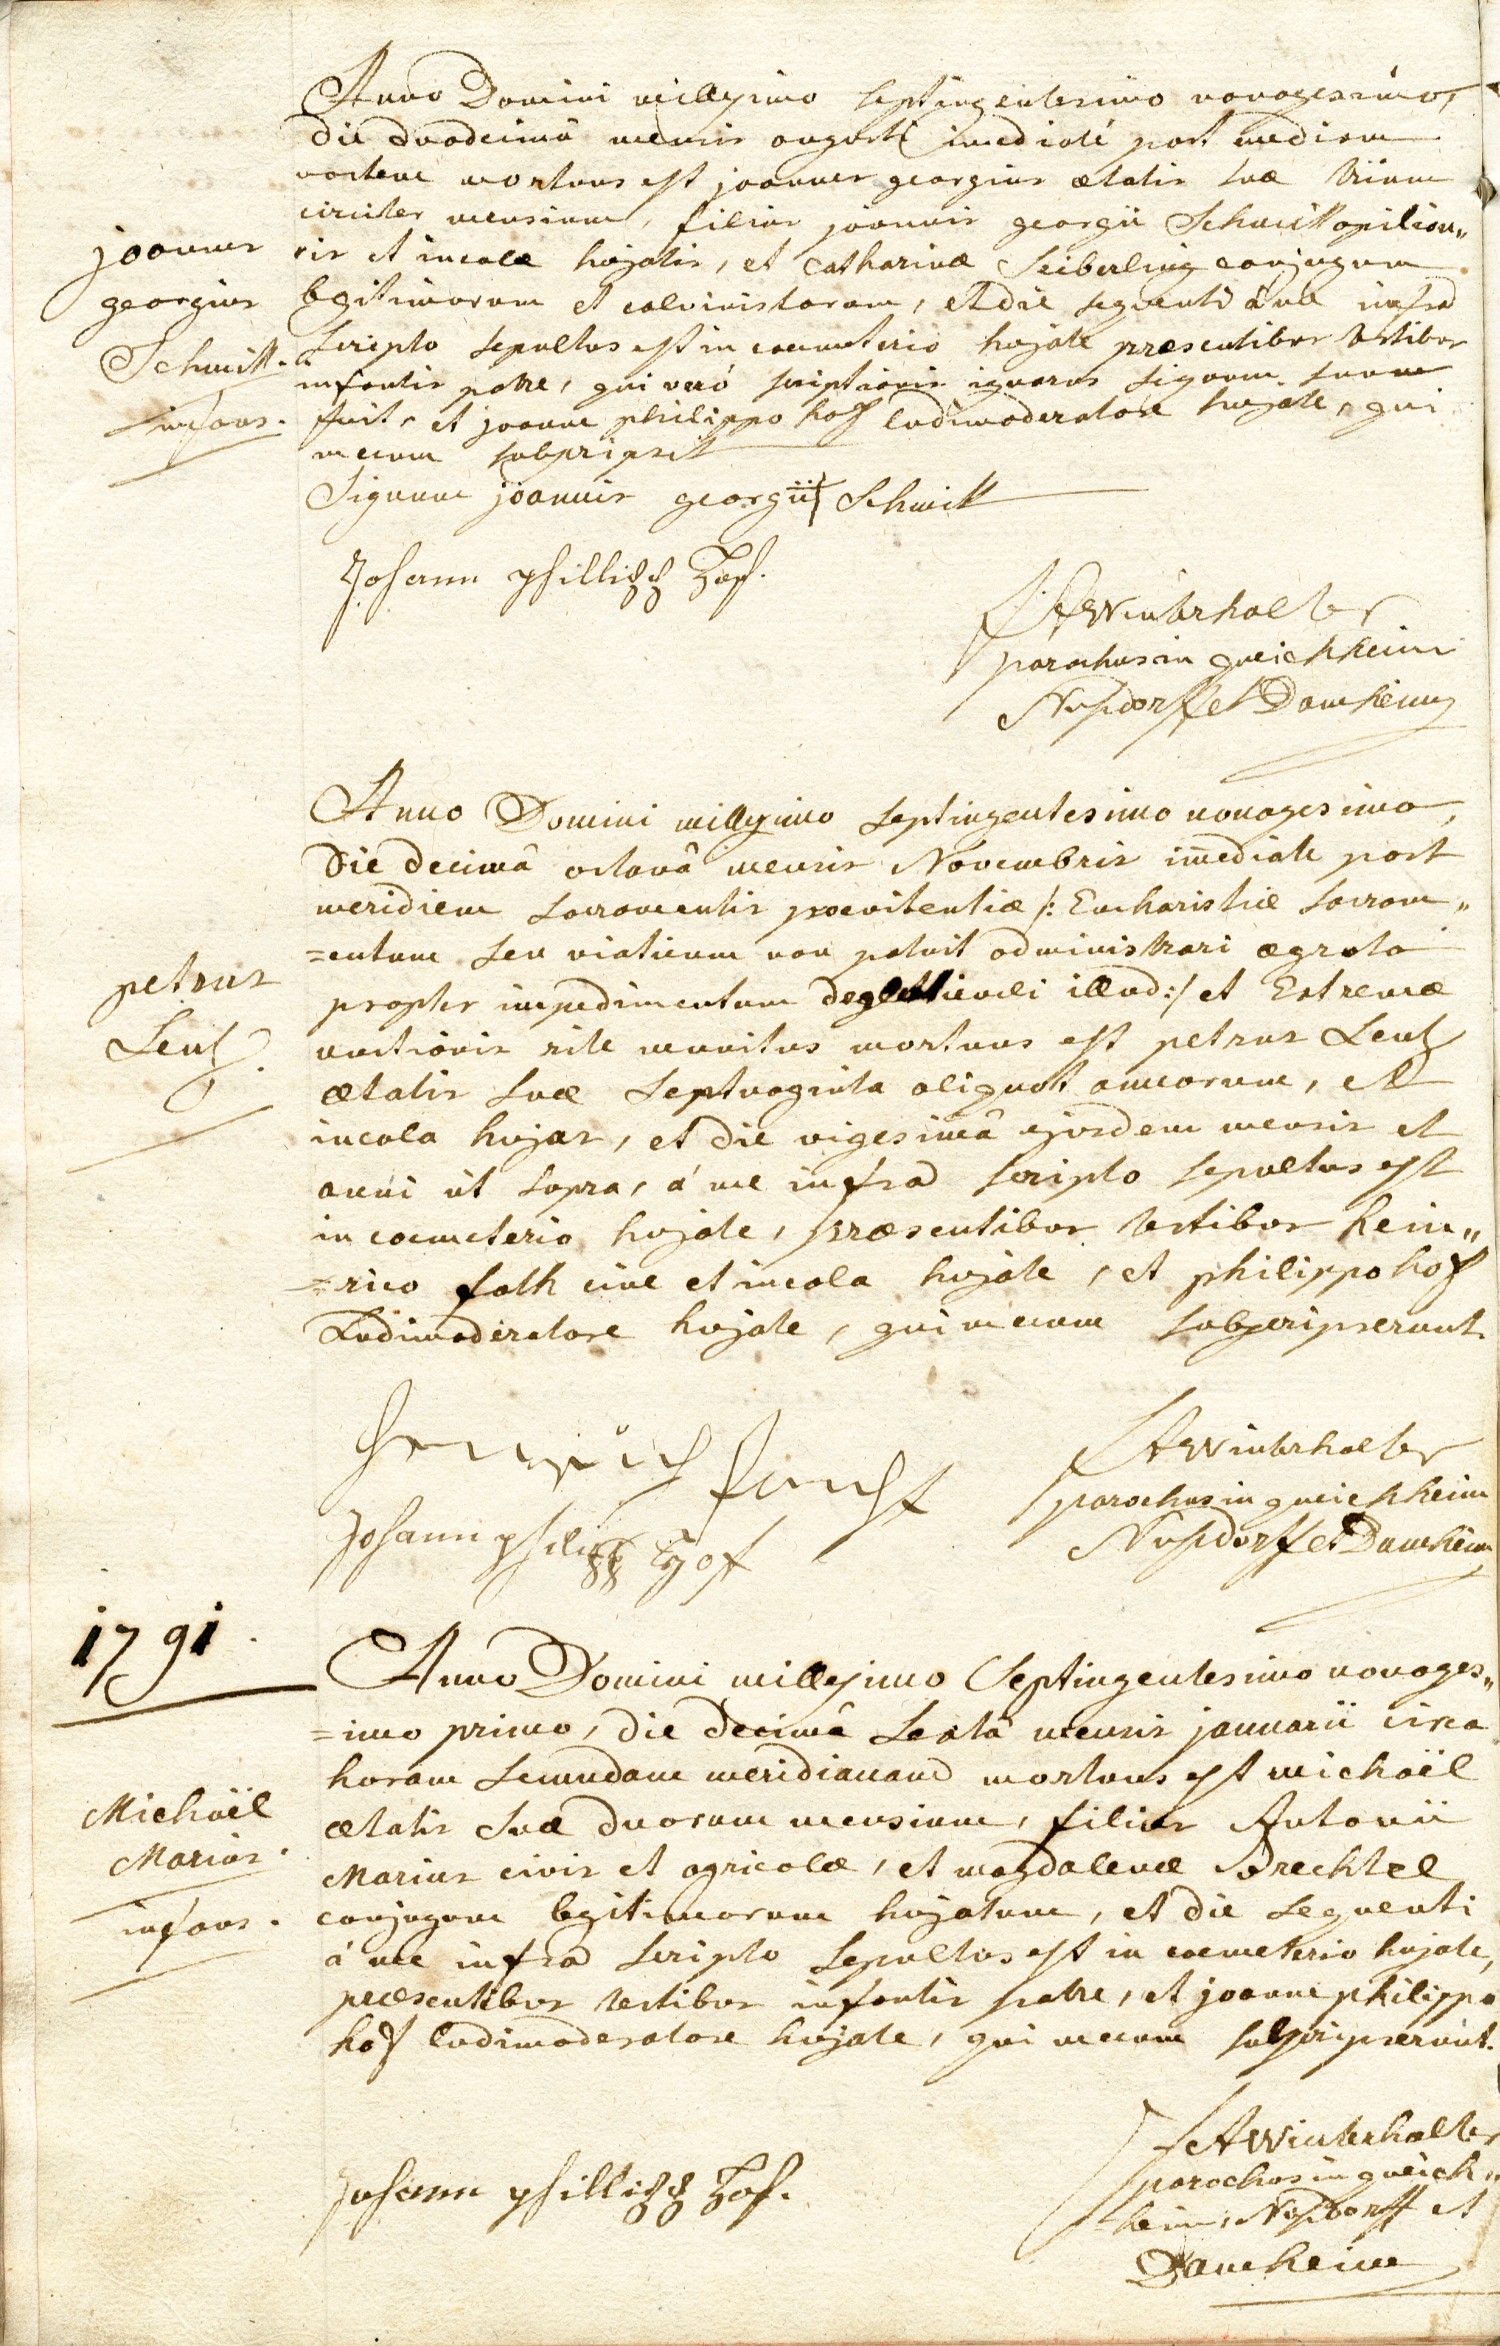 Anno Domini millesimo septingentesimo nonagesimo,
die duodecimâ mensis augusti imediaté post mediam
noctem mortuus est joannes georgius ætatis suæ trium
circiter mensium, filius joannis georgii Schmitt opilion„
ris et incolæ hujatis, et Catharinæ Seiberling conjugum
legitimorum et calvinistarum, et die sequenti á me infra
joannes
georgius
Schmitt.
infans.
scripto sepultus est in coemeterio hujate præsentibus testibus
infantis patre, qui veró scriptionis ignarus signum suum
fecit, et joanne philippo hoff ludimoderatore hujate, qui
mecum subscripsit
Signum joannis georgii + Schmitt
Johann phillipp Hof.
FA Winterhalter
parochus in queichheim
Nusdorff et Damheim
Anno Domini millesimo septingentesimo nonagesimo,
die decimâ octavâ mensis Novembris imediate post
meridiem sacramentis poenitentiæ /: Eucharistiæ sacram„
=entum seu viaticum non potuit administrari ægroto
propter impedimentum deglutiendi illud :/ et Extremæ
unctionis rite munitus mortuus est petrus Lentz
ætatis suæ septuaginta aliquot annorum, et
incola hujas, et die vigesimâ ejusdem mensis et
anni ut supra, á me infra scripto sepultus est
in coemeterio hujate, præsentibus testibus hein„
=rico fath cive et incola hujate, et philippo hoff
Ludimoderatore hujate, qui mecum subscripserunt.
petrus
Lentz.
FA Winterhalter
parochus in queichheim
Nusdorff et Damheim
Johann philipp Hof
1791.
Anno Domini millesimo Septingentesimo nonages„
=imo primo, die decimâ sextâ mensis januarii circa
horam secundam meridianam mortuus est michaël
ætatis suæ duorum mensium, filius Antonii
Marius civis et agricolæ, et magdalenæ Brechtel
conjugum legitimorum hujatum, et die sequenti
á me infra scripto sepultus est in coemeterio hujate,
præsentibus testibus infantis patre, et joanne philippo
hoff ludimoderatore hujate, qui mecum subscripserunt.
Michaël
Marius.
infans.
FA Winterhalter
parochus in queich„
heim, Nusdorff et
Damheim
Johann phillipp Hof.